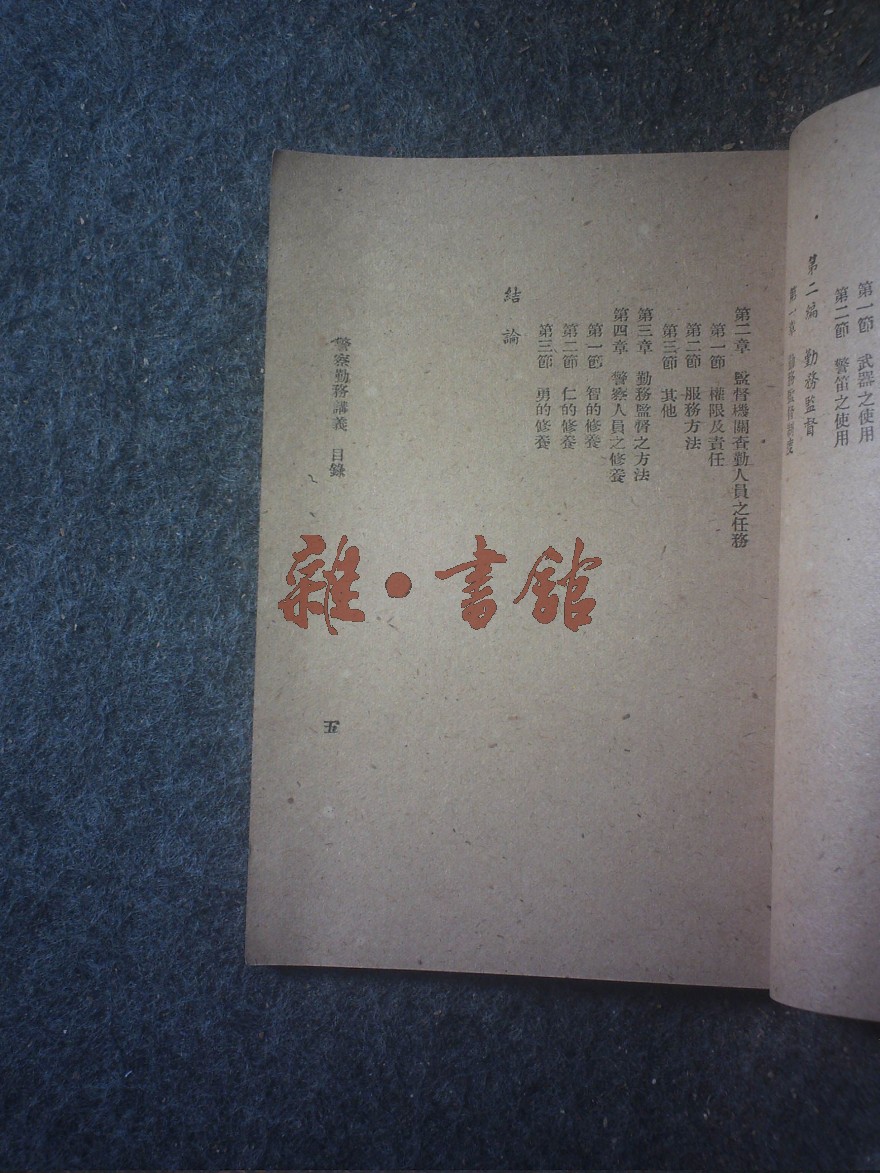 第一節　武器之使用
第二節　警笛之使用
第二編　勤務監督
第一章　勤務監督制度
第二章　監督機關查勤人員之任務
第一節　權限及責任
第二節　服務方法
第三節　其他
第三章　勤務監督之方法
第四章　警察人員之修養
第一節　智的修養
第二節　仁的修養
第三節　勇的修養
結論
警察勤務講義　目錄
五
雜・書館